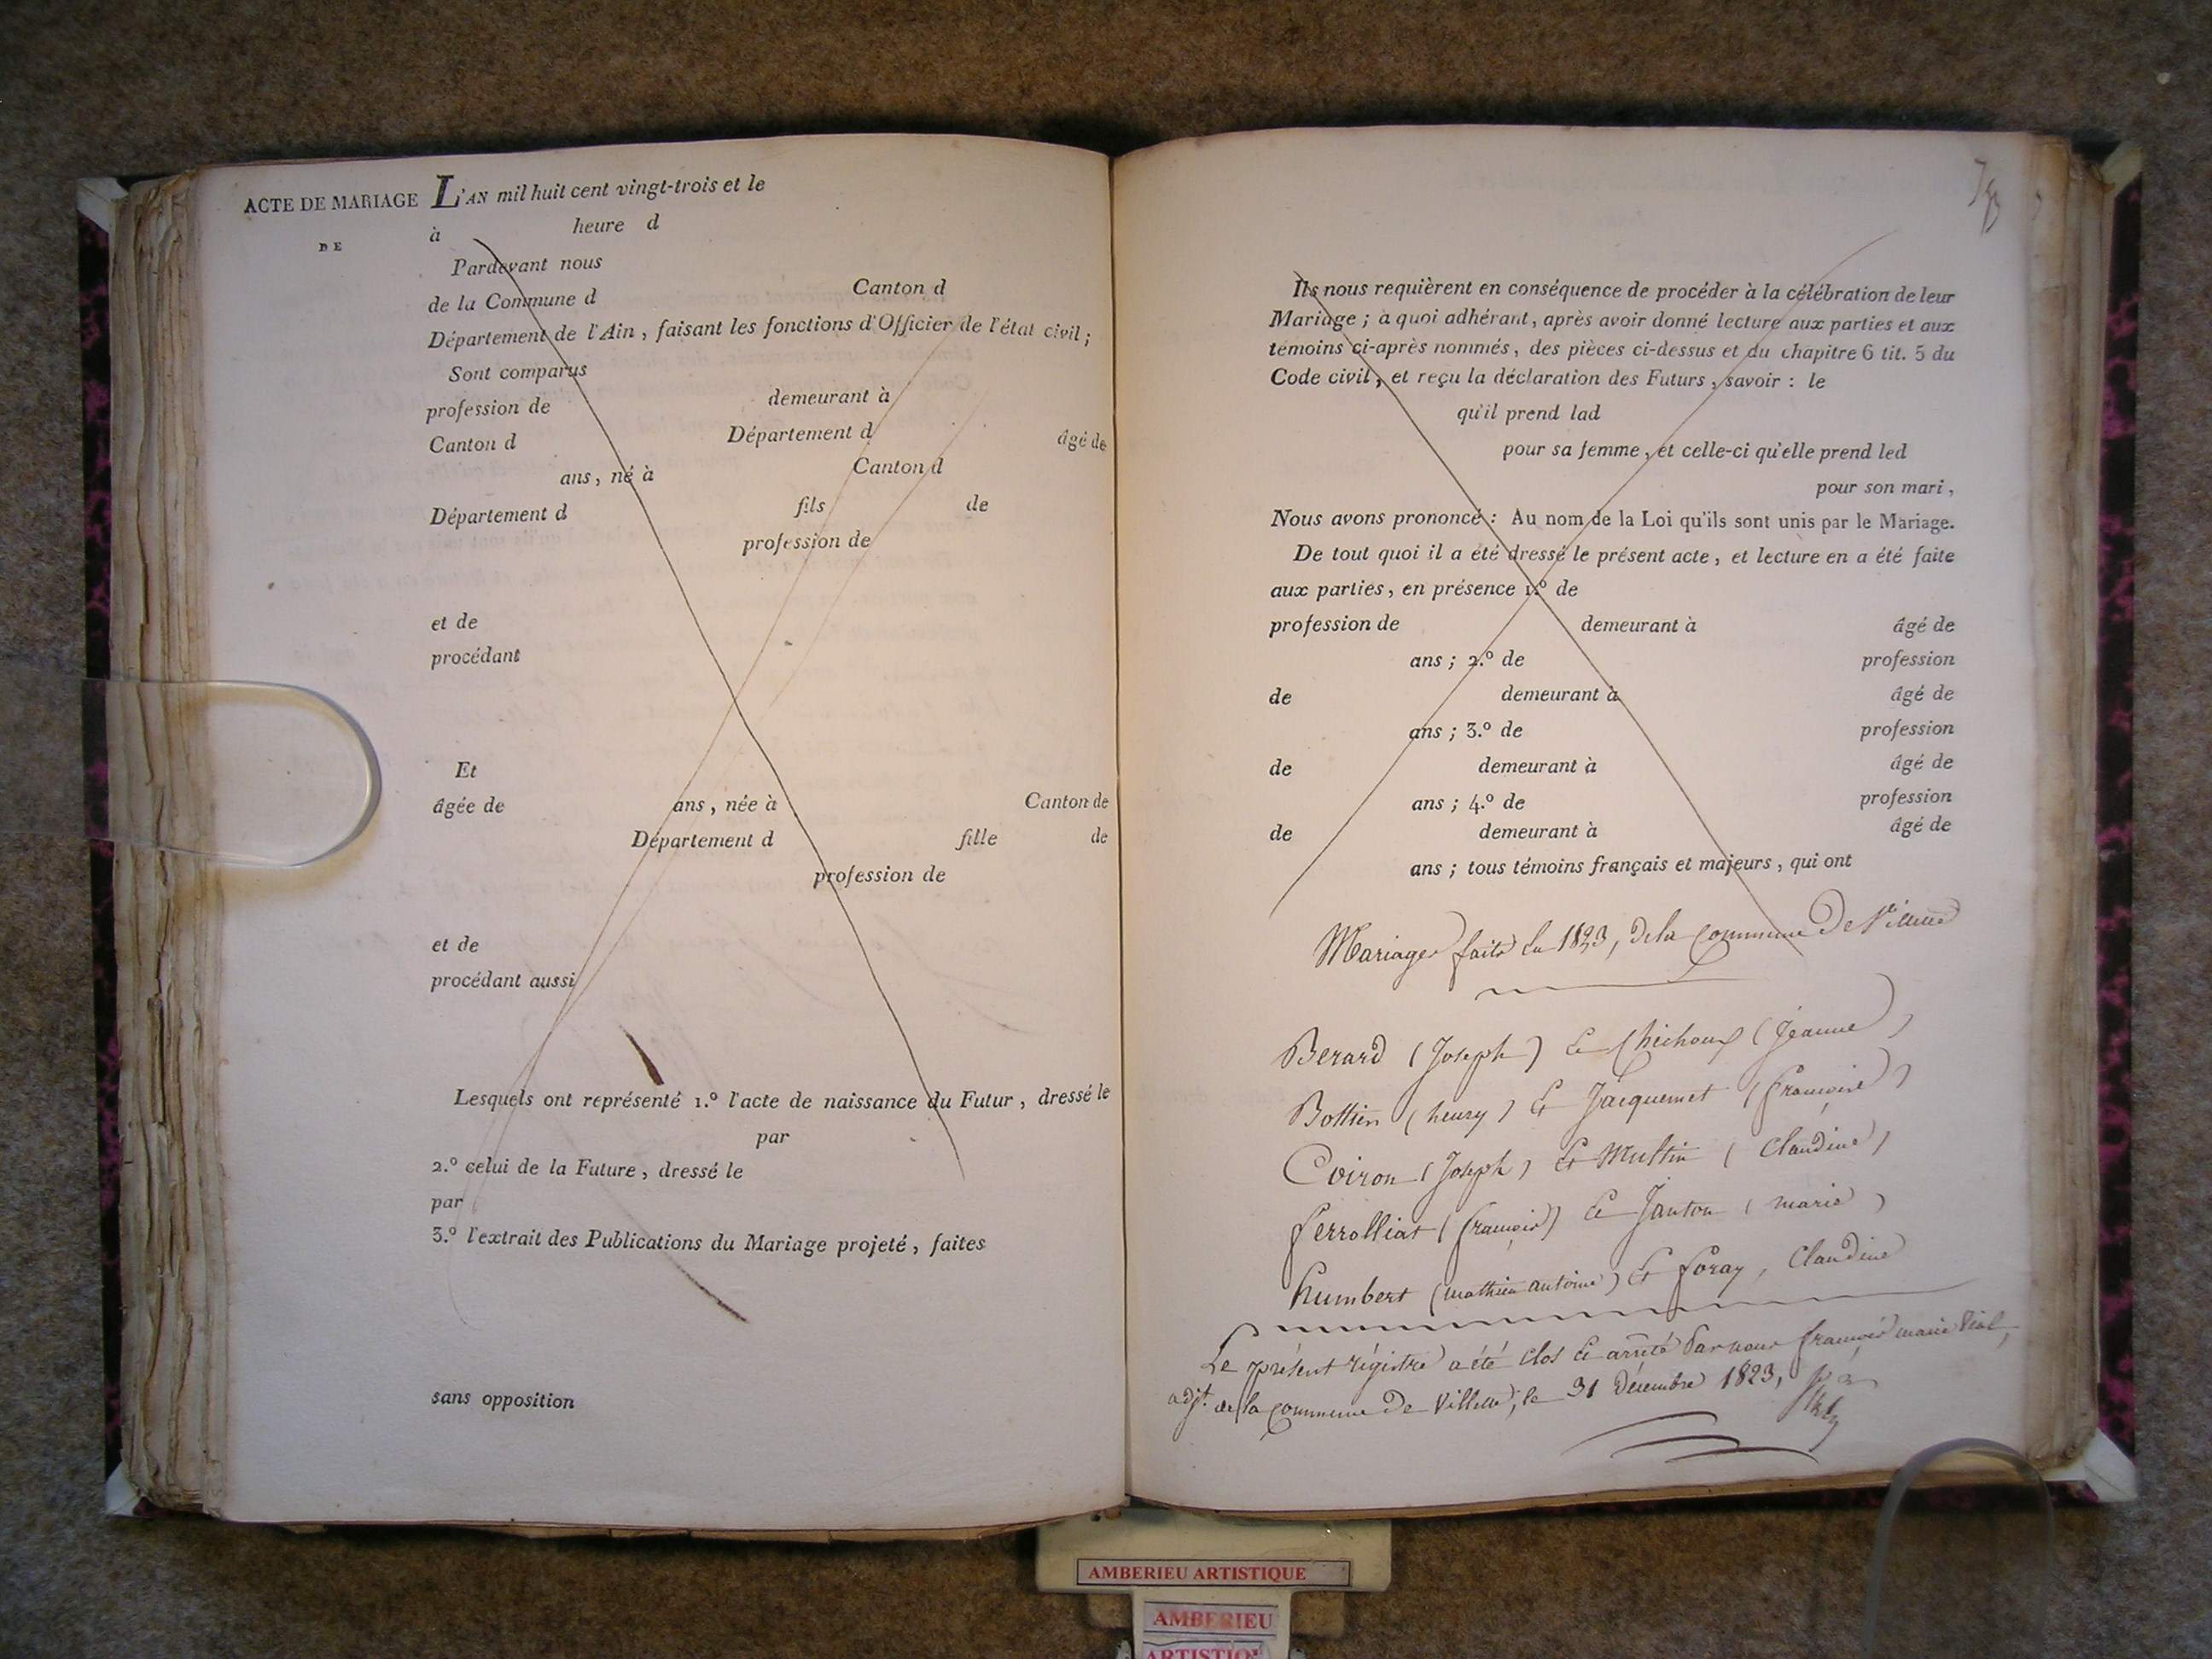 ACTE DE MARIAGE L'AN mil huit cent vingt-trois et le
DE à heure d
Pardevant nous
de la Commune d Canton d
Département de l'Ain, faisant les fonctions d'Officier de l'état civil;
Sont comparus
profession de demeurant à
Canton d Département d âgé de
ans, né à Canton d
Département d fils de
profession de
et de
procédant
Et
âgée de ans, née à Canton de
Département d fille de
profession de
et de
procédant aussi
Lesquels ont représenté 1.º l'acte de naissance du Futur, dressé le
par
2.º celui de la Future, dressé le
par
3.º l'extrait des Publications du Mariage projeté, faites
sans opposition
Ils nous requièrent en conséquence de procéder à la célébration de leur
Mariage; à quoi adhérant, après avoir donné lecture aux parties et aux
témoins ci-après nommés, des pièces ci-dessus et du chapitre 6 tit. 5 du
Code civil, et reçu la déclaration des Futurs, savoir: le
qu'il prend lad
pour sa femme, et celle-ci qu'elle prend led
pour son mari,
Nous avons prononcé: Au nom de la Loi qu'ils sont unis par le Mariage.
De tout quoi il a été dressé le présent acte, et lecture en a été faite
aux parties, en présence 1.º de
profession de demeurant à âgé de
ans; 2.º de profession
de demeurant à âgé de
ans; 3.º de profession
de demeurant à âgé de
ans; 4.º de profession
de demeurant à âgé de
ans; tous témoins français et majeurs, qui ont
Mariages faits en 1823, de la commune de Villette
Berard (Joseph) et Chichoux (Jeanne)
Bottien (henry) et Jacquemet (françoise)
Coiron (Joseph) et Mustin (Claudine)
ferrolliat (françois) et Janton (marie)
humbert (mathieu antoine) et foray, Claudine
Le présent régistre a été clos et arrêté par nous françois marie Vial,
adjt. de la commune de Villette, le 31 décembre 1823,
AMBERIEU ARTISTIQUE
AMBERIEU
ARTISTIQ